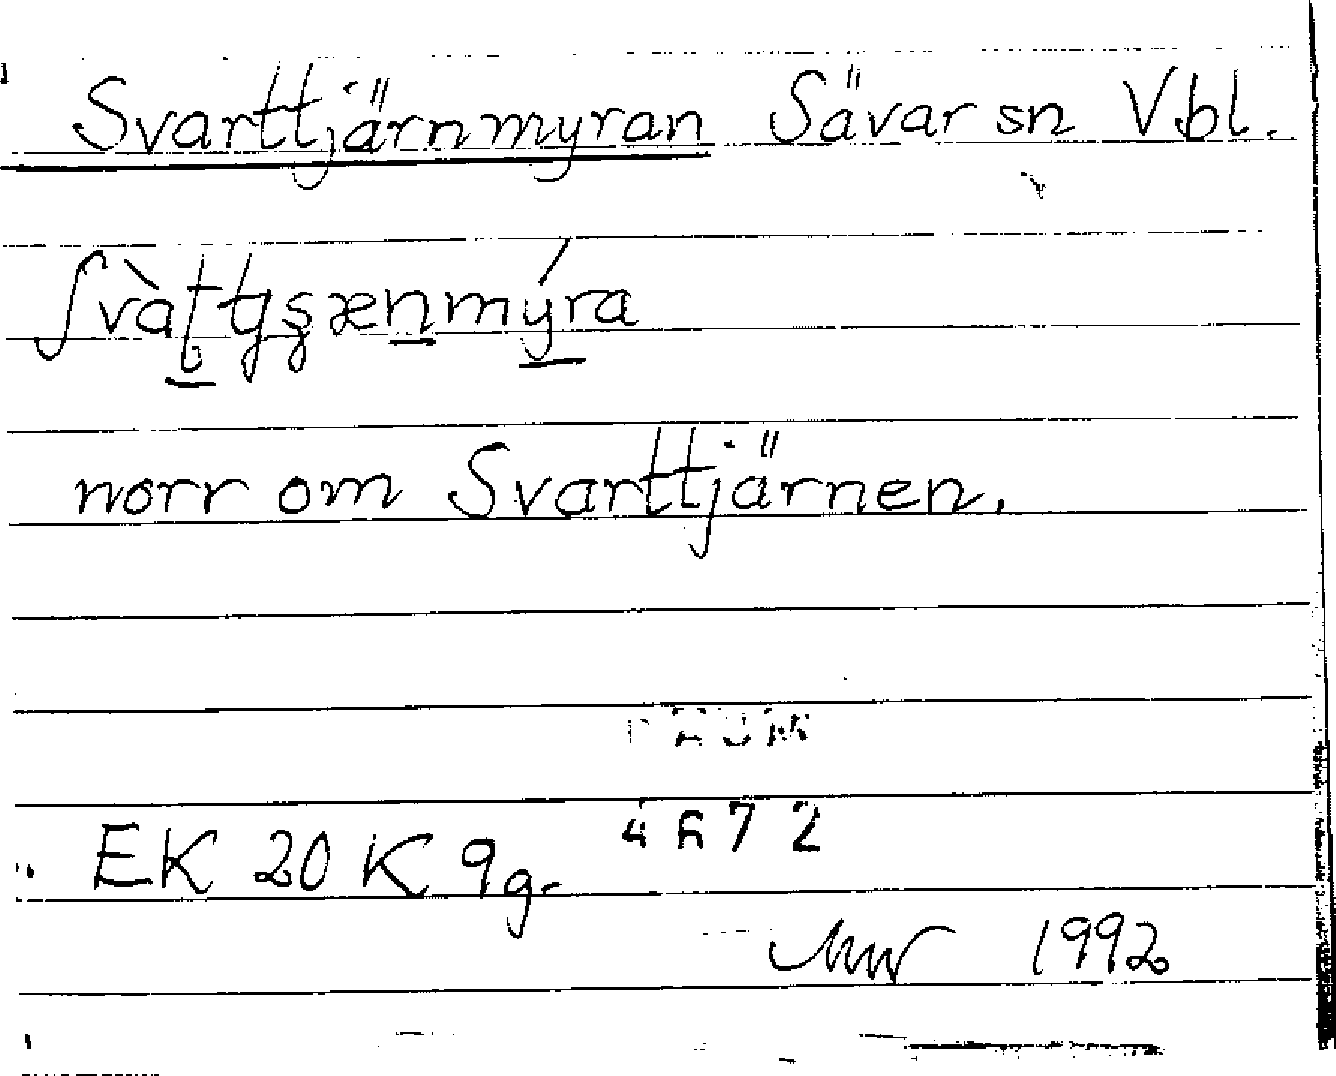 Svarttjärnmyran Sävar sn Vbl.
norr om Svarttjärnen.
4672
EK 20 K 9g.
1992